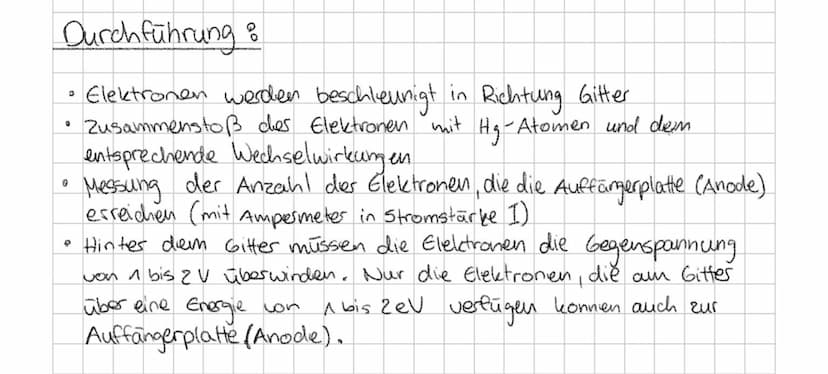 Durchführung:
• Elektronen werden beschleunigt in Richtung Gitter
• Zusammenstoß der Elektronen mit Hg-Atomen und dem
entsprechende Wechselwirkungen
• Messung der Anzahl der Elektronen, die die Auffängerplatte (Anode)
erreichen (mit Ampermeter in Stromstärke I)
• Hinter dem Gitter müssen die Elektronen die Gegenspannung
von 1 bis 2 V überwinden. Nur die Elektronen, die am Gitter
über eine Energie von 1 bis 2 eV verfügen können auch zur
Auffängerplatte (Anode).